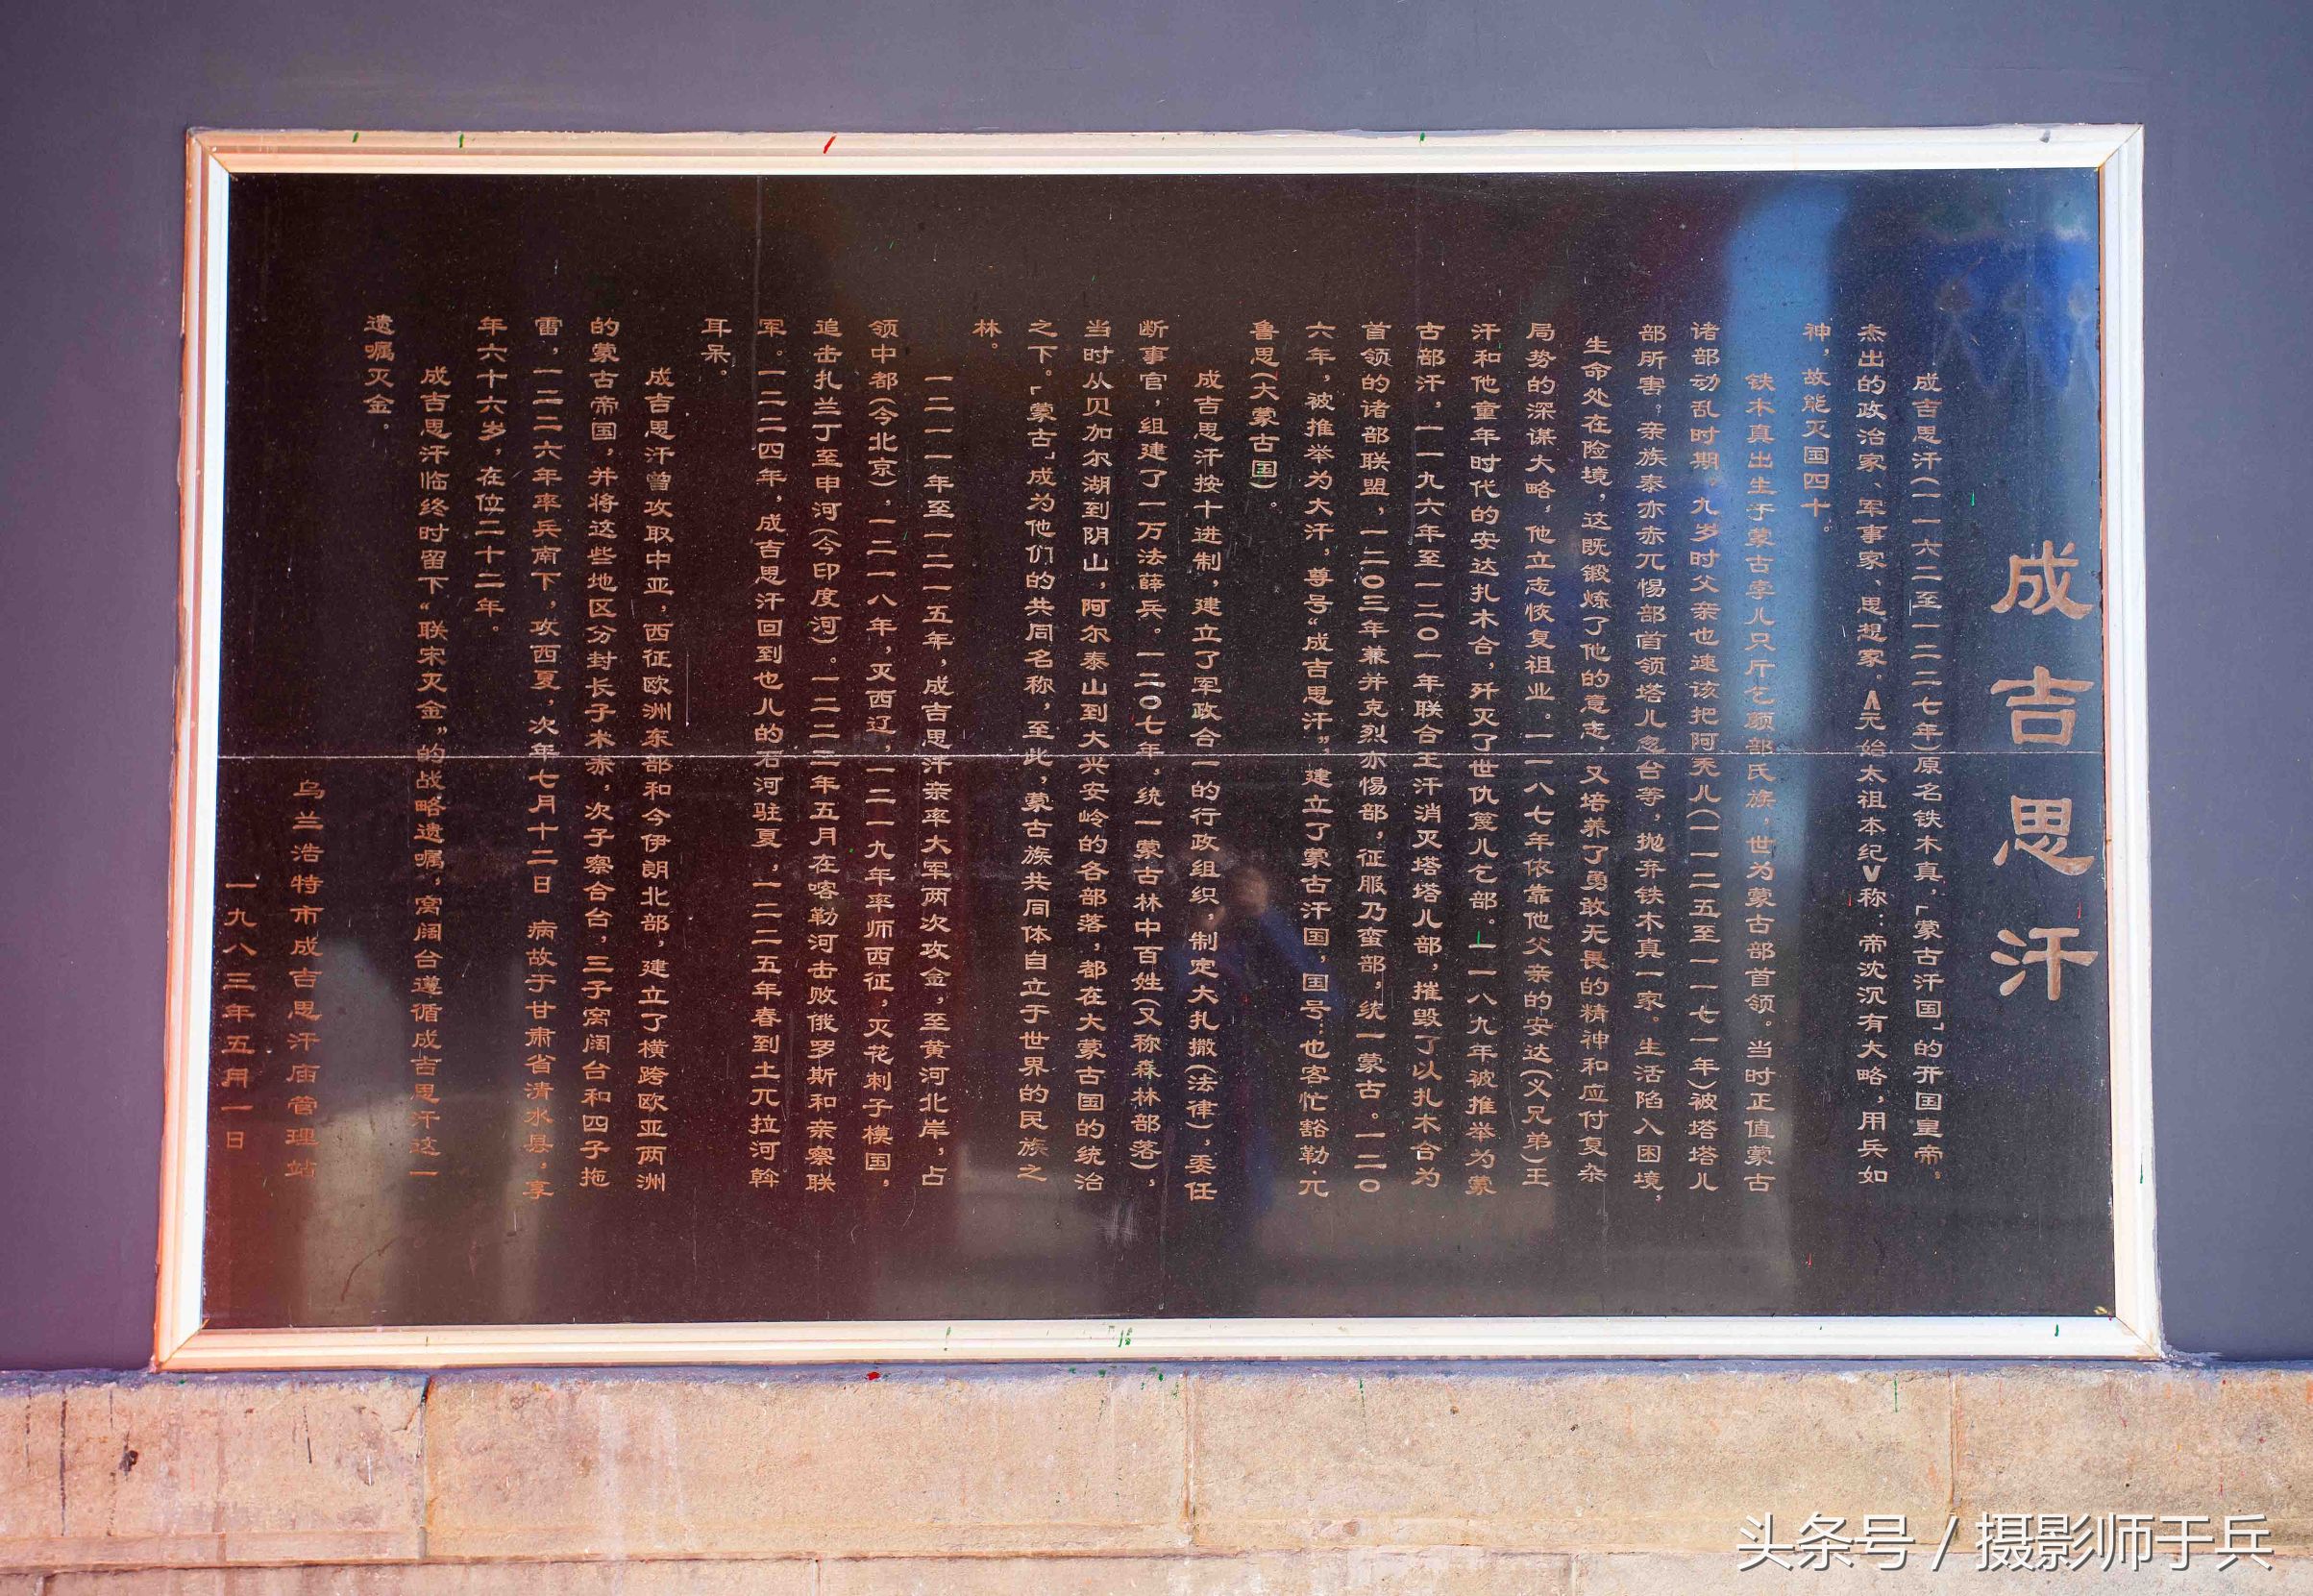 成吉思汗
成吉思汗(一一六二至一二二七年)原名铁木真,「蒙古汗国」的开国皇帝。
杰出的政治家、军事家、思想家。∧元始太祖本纪∨称:帝沈沉有大略,用兵如
神,故能灭国四十。
铁木真出生于蒙古孛儿只斤乞颜部氏族,世为蒙古部首领。当时正值蒙古
诸部动乱时期。九岁时父亲也速该把阿秃儿(一一二五至一一七一年)被塔塔儿
部所害。亲族泰亦赤兀惕部首领塔儿忽台等,抛弃铁木真一家。生活陷入困境,
生命处在险境,这既锻炼了他的意志,又培养了勇敢无畏的精神和应付复杂
局势的深谋大略,他立志恢复祖业。一一八七年依靠他父亲的安达(义兄弟)王
汗和他童年时代的安达扎木合,歼灭了世仇篾儿乞部。一一八九年被推举为蒙
古部汗,一一九六年至一二〇一年联合王汗消灭塔塔儿部,摧毁了以扎木合为
首领的诸部联盟,一二〇三年兼并克烈亦惕部,征服乃蛮部,统一蒙古。一二〇
六年,被推举为大汗,尊号“成吉思汗”,建立了蒙古汗国,国号:也客忙豁勒·兀
鲁思(大蒙古国)。
成吉思汗按十进制,建立了军政合一的行政组织,制定大扎撒(法律),委任
断事官,组建了一万法薛兵。一二〇七年,统一蒙古林中百姓(又称森林部落),
当时从贝加尔湖到阴山,阿尔泰山到大兴安岭的各部落,都在大蒙古国的统治
之下。「蒙古」成为他们的共同名称,至此,蒙古族共同体自立于世界的民族之
林。
一二一一年至一二一五年,成吉思汗亲率大军两次攻金,至黄河北岸,占
领中都(今北京),一二一八年,灭西辽,一二一九年率师西征,灭花剌子模国,
追击扎兰丁至申河(今印度河)。一二二三年五月在喀勒河击败俄罗斯和亲察联
军。一二二四年,成吉思汗回到也儿的石河驻夏,一二二五年春到土兀拉河斡
耳朵。
成吉思汗曾攻取中亚,西征欧洲东部和今伊朗北部,建立了横跨欧亚两洲
的蒙古帝国,并将这些地区分封长子术赤,次子察合台,三子窝阔台和四子拖
雷,一二二六年率兵南下,攻西夏,次年七月十二日 病故于甘肃省清水县,享
年六十六岁,在位二十二年。
成吉思汗临终时留下“联宋灭金”的战略遗嘱,窝阔台遵循成吉思汗这一
遗嘱灭金。
乌兰浩特市成吉思汗庙管理站
一九八三年五月一日
头条号 / 摄影师于兵